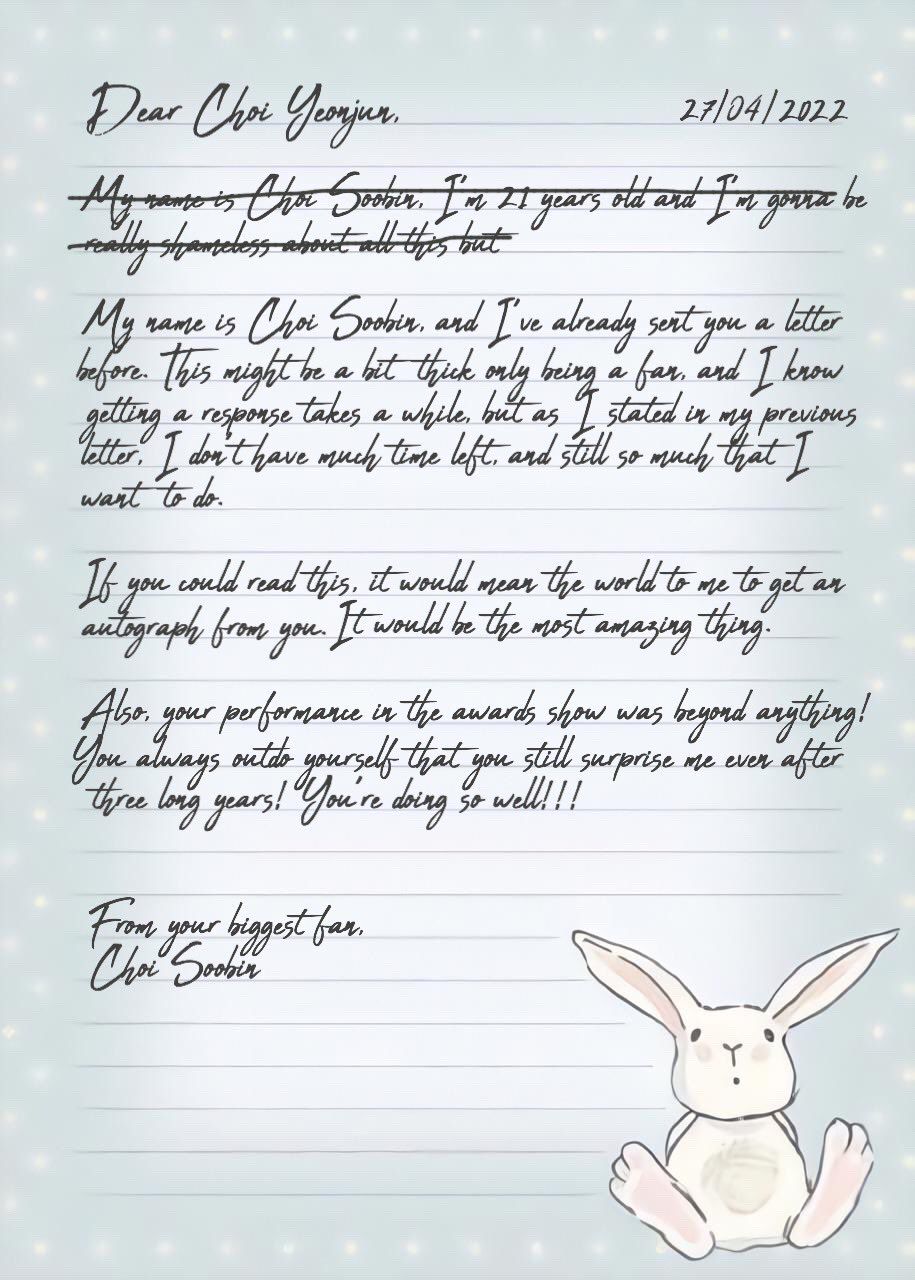 Dear Choi Yeonjun, 27/04/2022
My name is Choi Soobin, I'm 21 years old and I'm gonna be
really shameless about all this but
My name is Choi Soobin, and I've already sent you a letter
before. This might be a bit thick only being a fan, and I know
getting a response takes a while, but as I stated in my previous
letter, I don't have much time left, and still so much that I
want to do.
If you could read this, it would mean the world to me to get an
autograph from you. It would be the most amazing thing.
Also, your performance in the awards show was beyond anything!
You always outdo yourself that you still surprise me even after
three long years! You're doing so well!!!
From your biggest fan,
Choi Soobin